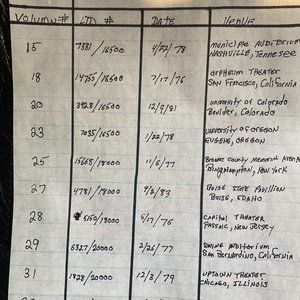 Volumn # LTD # DATE VENUE
15 7581/16500 4/22/78 municipal AUDITORIUM
NASHVILLE, Tennesee
18 14755/16500 7/17/76 ORPHEUM THEATER
SAN FRANCISCO, CALIFORNIA
20 3928/16500 12/9/81 University of Colorado
Boulder, Colorado
23 7035/16500 1/22/78 UNIVERSITY OF OREGON
EUGENE, OREGON
25 15668/18000 11/6/77 Broome County Memorial ARENA
Binghamton, New York
27 4781/18000 9/2/83 BOISE STATE Pavillion
BOISE, IDAHO
28 5150/18000 6/17/76 CAPITOL THEATER
PASSAIC, NEW JERSEY
29 6327/20000 2/26/77 SWING AUDITORIUM
SAN BERNARDINO, CALIFORNIA
31 1828/20000 12/3/79 UPTOWN THEATER
CHICAGO, ILLINOIS